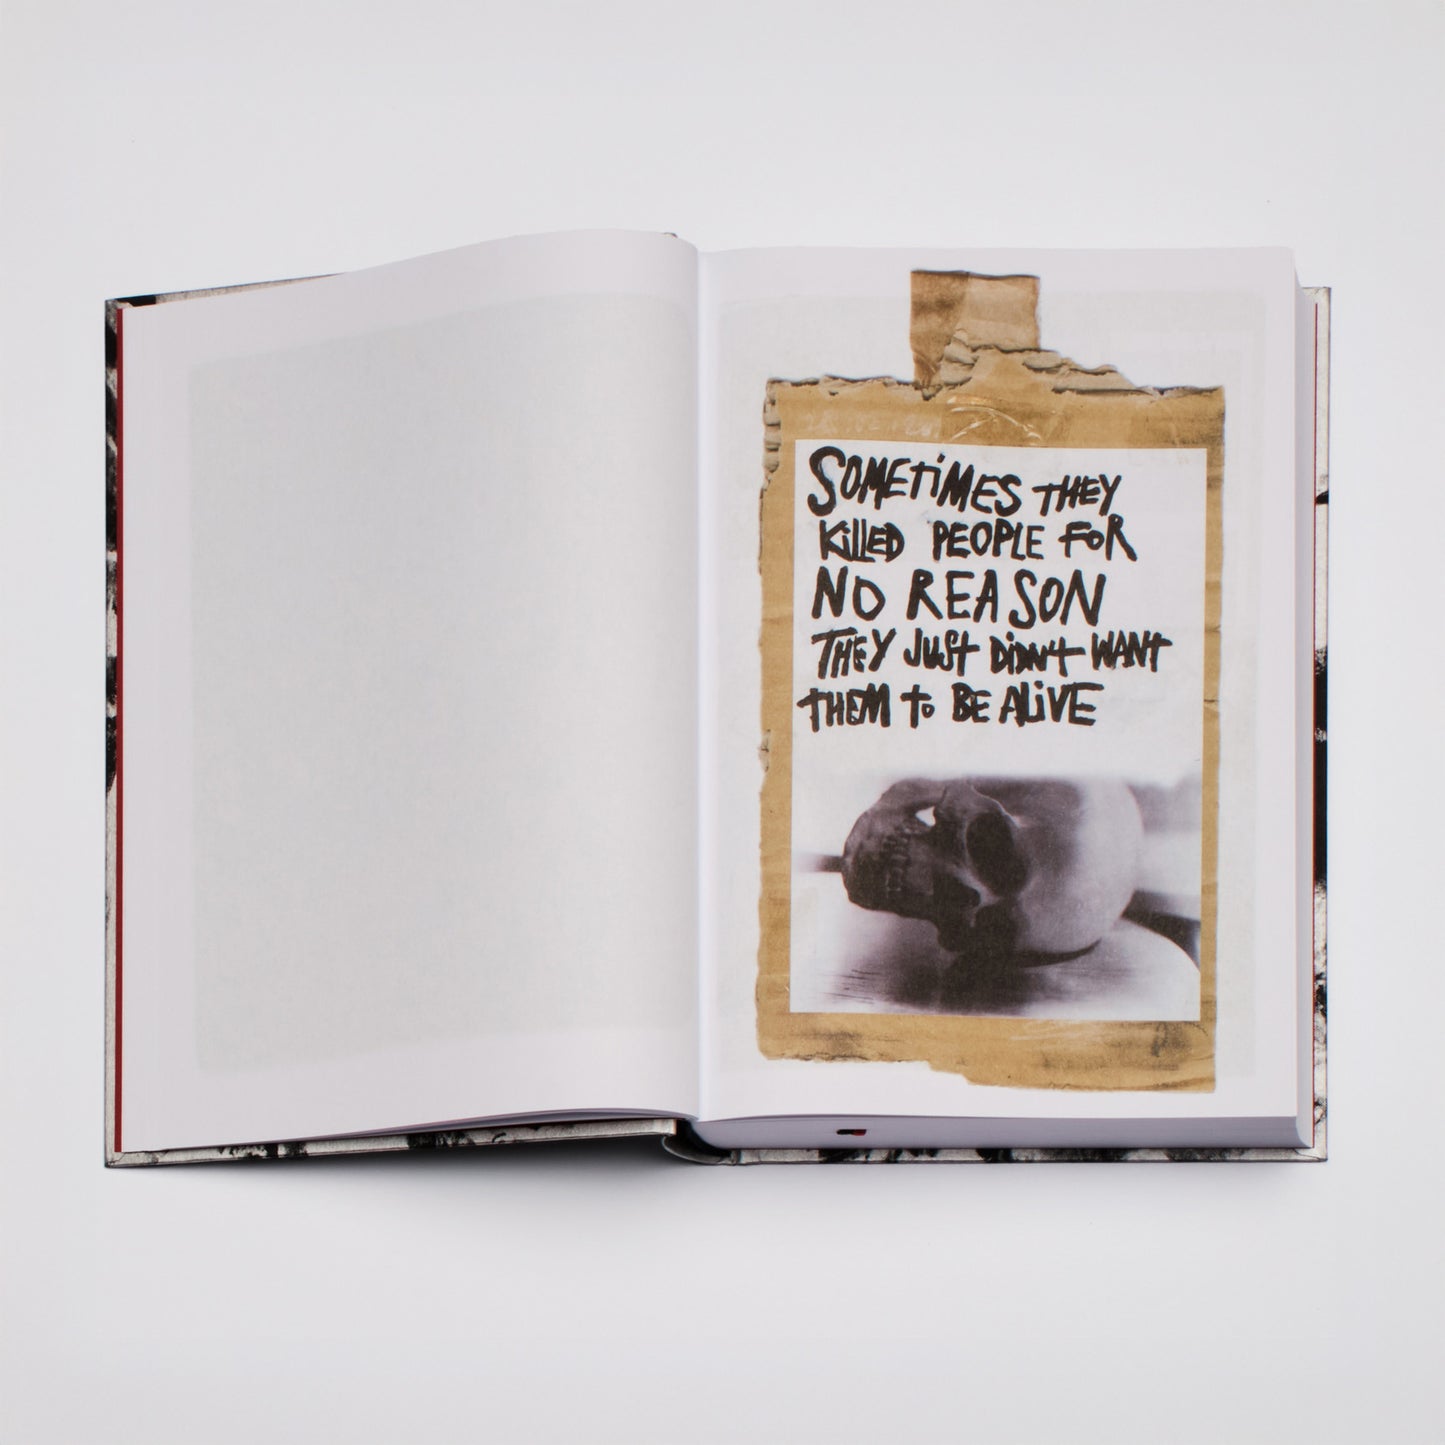 SOMETiMES THEY
KiLLED PEOPLE FOR
NO REASON
THEY JUSt DiDN't WANt
tHEM to BE ALiVE